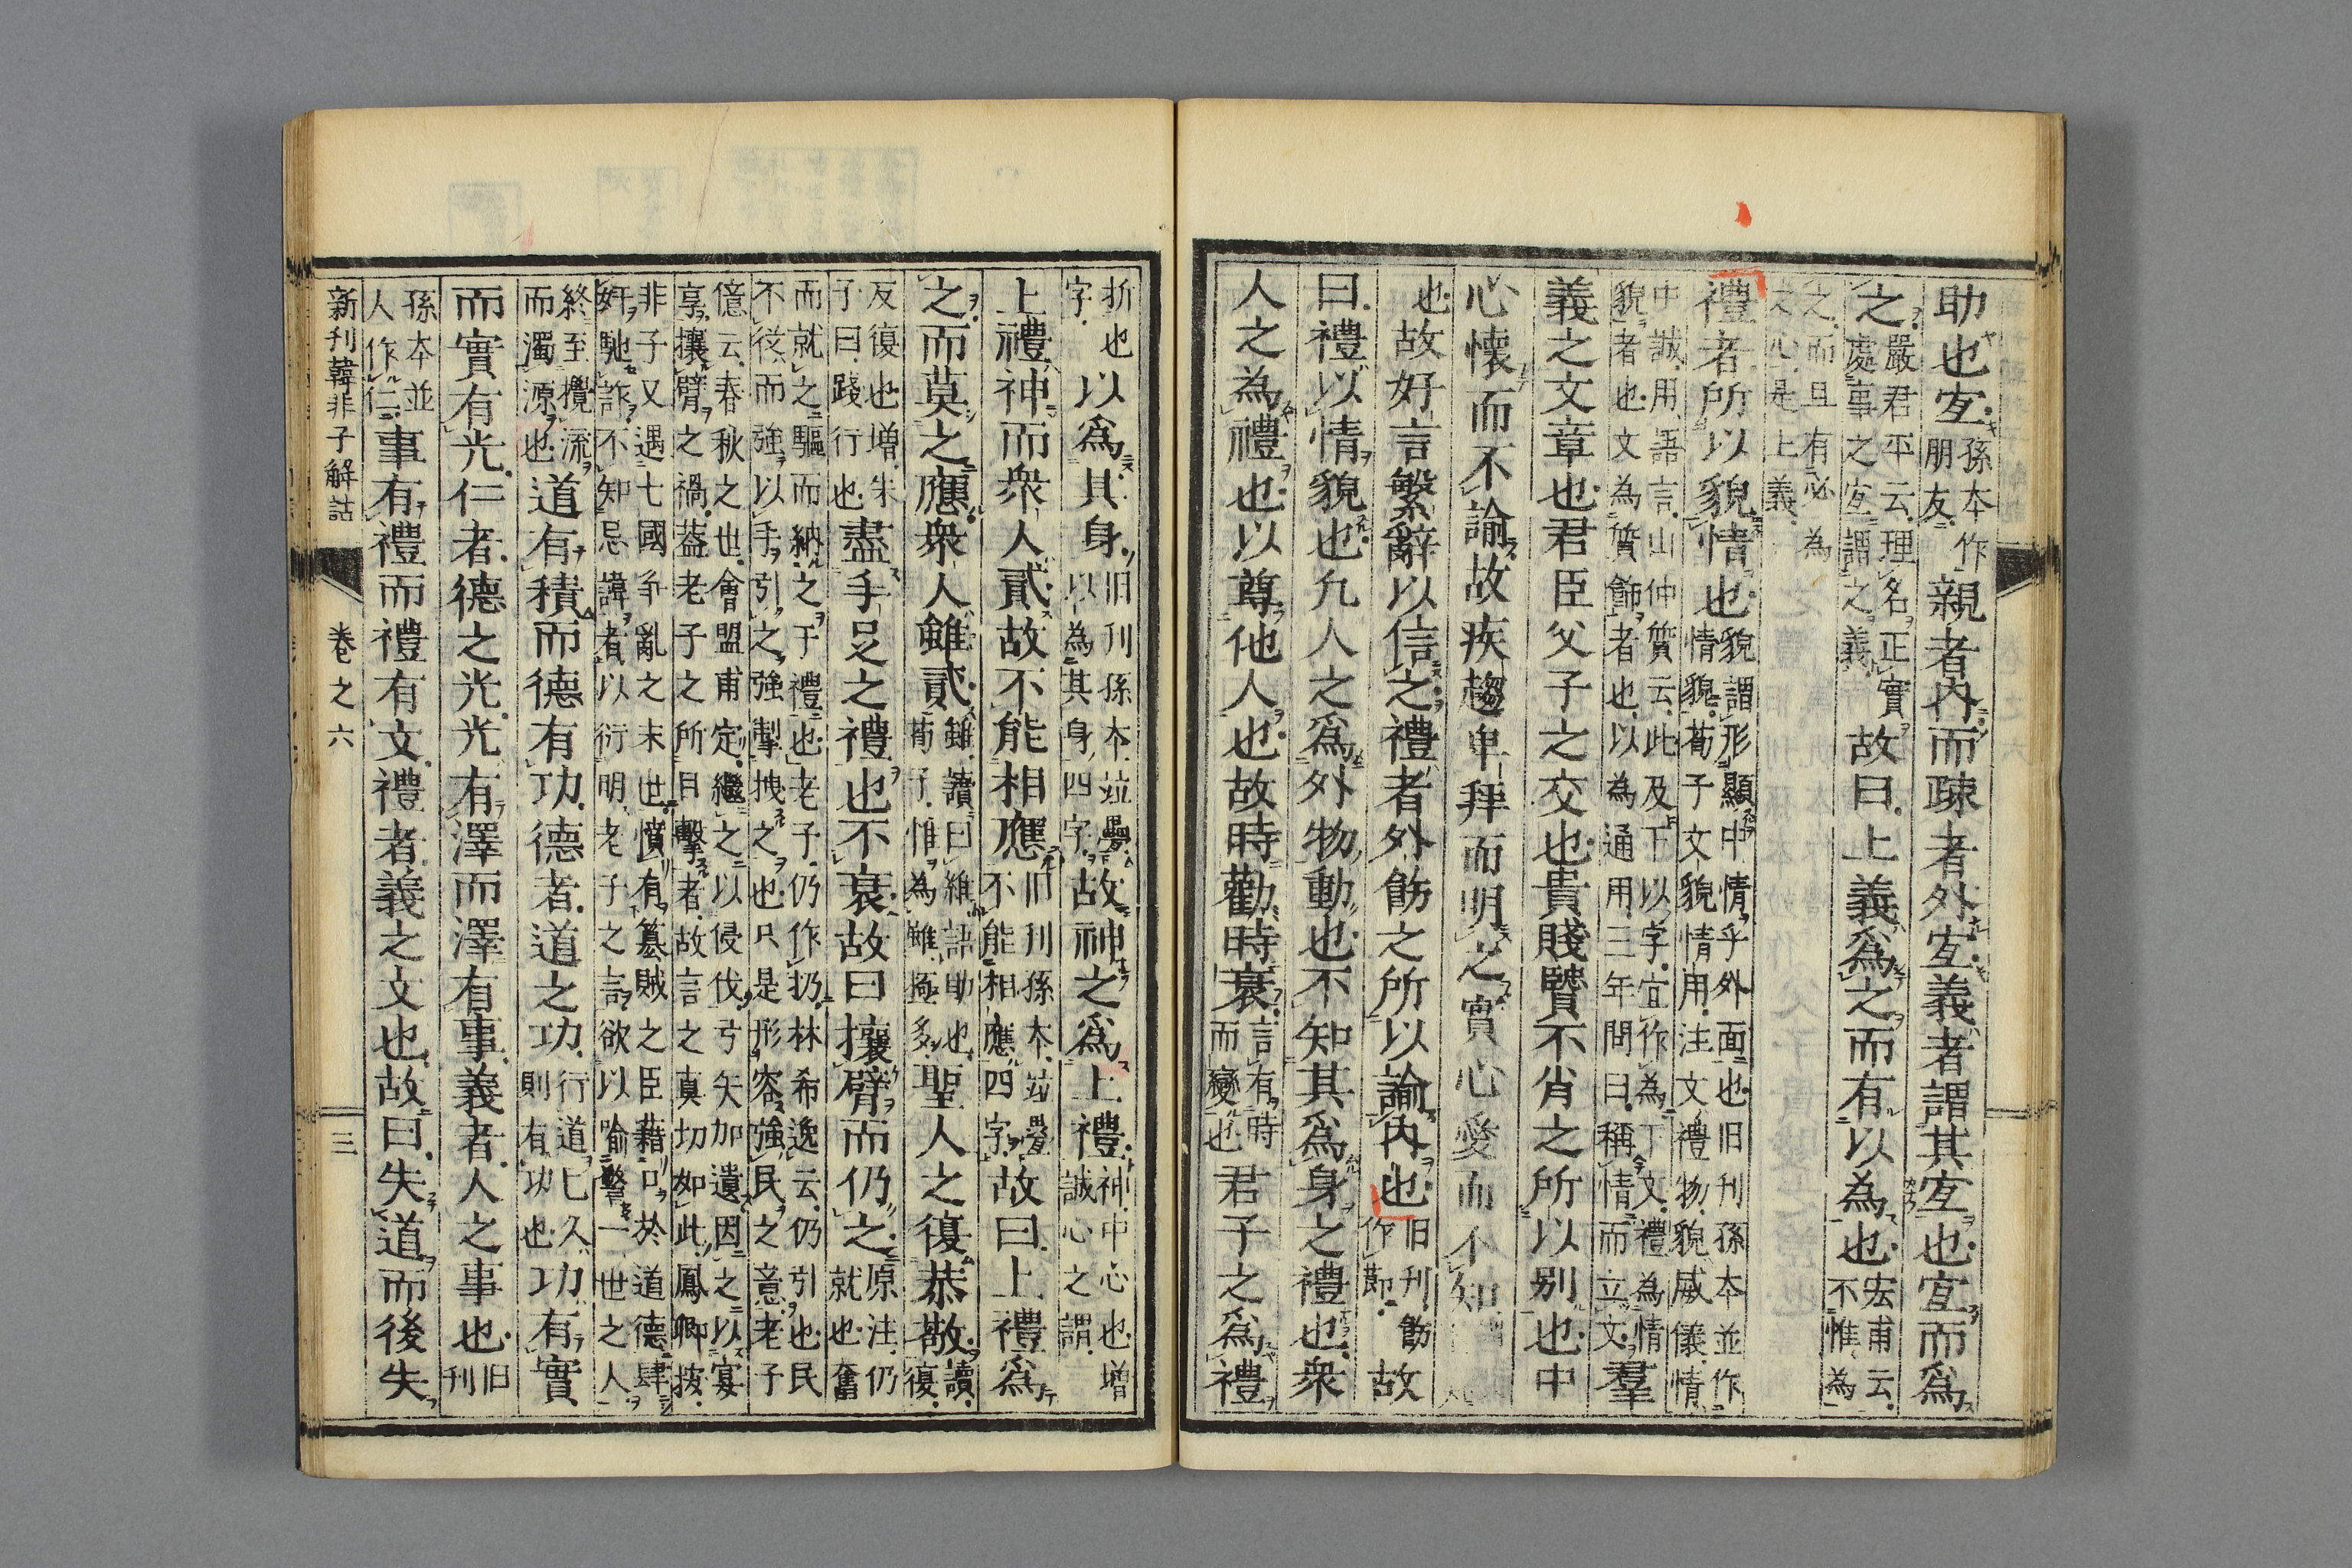 助也宜孫本作朋友親者内而疎者外宜義者謂其宜也宜而爲
之嚴君平云理名正實處事之宜謂之義故曰上義爲之而有以為也宏甫云不惟為
之而且有必為之心是上義
禮者所以貌情也貌謂形顯中情乎外面也旧刊孫本並作情貌荀子文貌情用注文禮物貌威儀情
中誠用語言山仲質云此及下以字宜作為下文禮為情貌者也文為質飾者也以為通用三年問曰稱情而立文羣
義之文章也君臣父子之交也貴賤賢不肖之所以别也中
心懷而不諭故疾趨卑拜而明之實心愛而不知
也故好言繁辭以信之禮者外飾之所以諭内也旧刊飾作節故
曰禮以情貌也凡人之爲外物動也不知其爲身之禮也衆
人之為禮也以尊他人也故時勸時衰言有時而變也君子之爲禮
折也字以爲其身旧刊孫本竝疊以為其身四字故神之爲上禮神中心也増誠心之謂
上禮神而衆人貳故不能相應旧刊孫本竝疊不能相應四字故曰上禮爲
之而莫之應衆人雖貳雖讀曰維語助也荀子惟為雖極多聖人之復恭敬讀復
反復也増朱子曰踐行也盡手足之禮也不衰故曰攘臂而仍之原注仍就也奮
而就之驅而納之于禮也老子仍作扔林希逸云仍引也民不從而強以手引之強掣拽之也只是形容強民之意老子
億云春秋之世會盟甫定繼之以侵伐弓矢加遺因之以宴享攘臂之禍葢老子之所目擊者故言之真切如此鳳卿按
非子又遇七國爭亂之末世憤有簒賊之臣藉口於道德肆奸馳詐不知忌諱者以衍明老子之言欲以喩警一世之人
終至攪流而濁源也道有積而德有功德者道之功行道已久則有功也功有實
而實有光仁者德之光光有澤而澤有事義者人之事也旧刊
孫本並人作仁事有禮而禮有文禮者義之文也故曰失道而後失
新刊韓非子解詁　卷之六　三